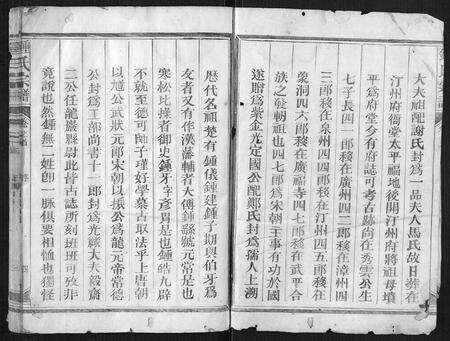 大夫祖配謝氏封爲一品夫人馬氏故日葬在
汀州府衙堂太平福地後開汀州府將祖母墳
平爲府堂今有府誌可考古跡尚在秀雲公生
七子長四一郎移在廣州四二郎移在漳州四
三郎移在泉州四四郎移在汀州四五郎移在
象洞四六郎移在廣福寺四七郎移在武平合
族之發朝祖也四七郎爲宋朝主事有功於國
遂贈爲紫金光定國公配鄭氏封爲孺人上溯
歷代名祖楚有鍾儀鍾建鍾子期與伯牙爲
友者又有作漢藩輔者大傅鍾繇號元常是也
寒松比操者御史鍾牙字彥胃是也鍾皓九辟
不就至德可師有瑾好學慕古取法乎上唐朝
以尯公武狀元郎宋朝以振公爲龍元帝常德
公封爲工部尚書十一郎封爲光祿大夫鐵齋
二公任龍巖縣尉此捺古誌所刻班班可攷非
竟說也然鍾無二姓卽一脈俱要相恤也獨怪
鍾氏
序
四